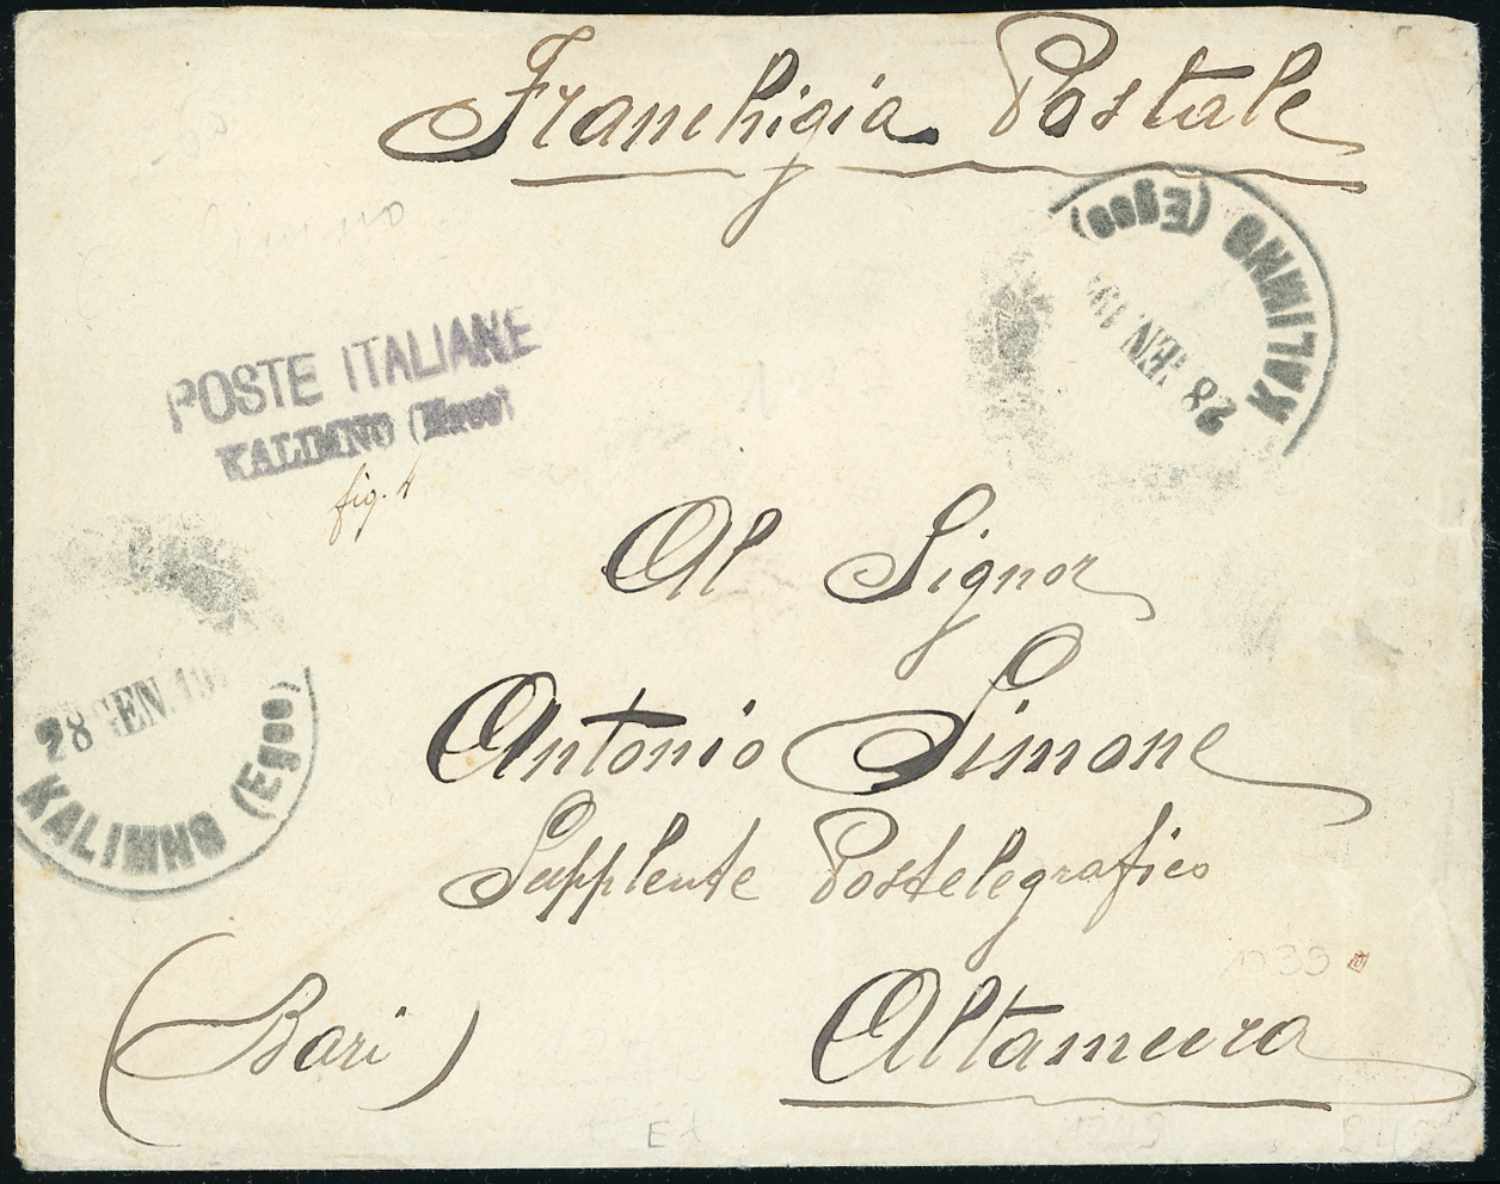 Franchigia Postale
KALIMNO (Egeo)
28 GEN. 19
POSTE ITALIANE
KALIMNO (Egeo)
fig. 4
Al Signor
Antonio Simone
28 GEN. 19
KALIMNO (Egeo)
Supplente Postelegrafico
1933
Altamura
(Bari)